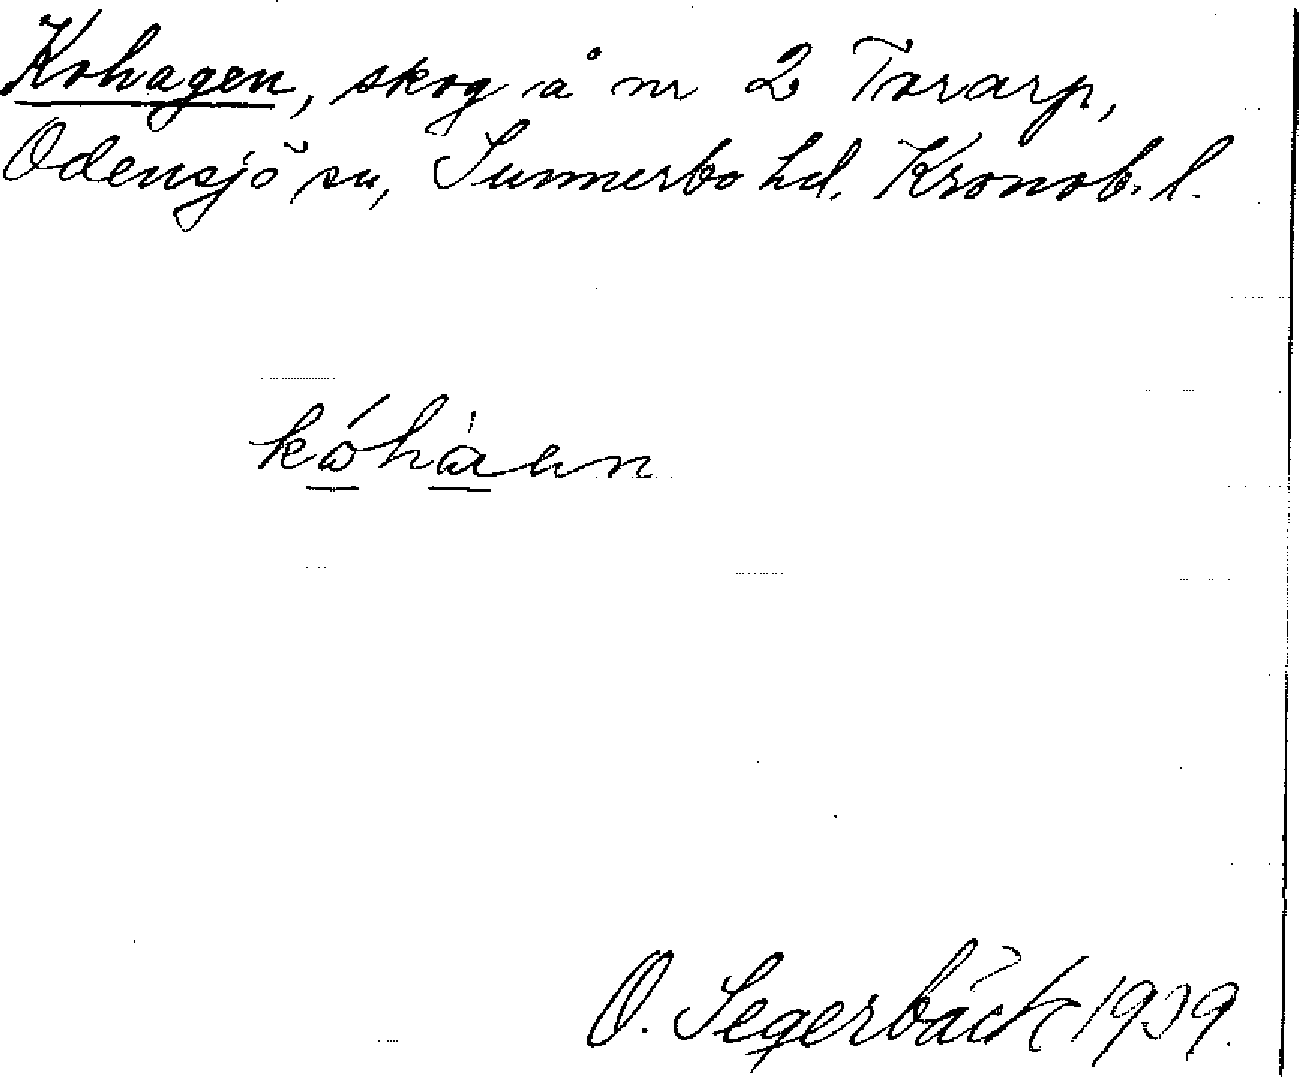 Kohagen, skog å nr 2 Torarp,
Odensjö sn, Sunnerbo hd. Kronob. l.
kóhàen
O. Segerbäck 1939.